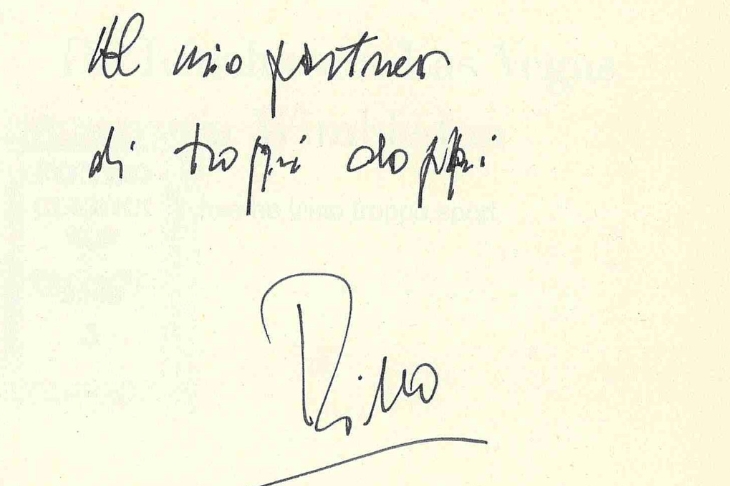 Al mio partner
di troppi doppi
Rino